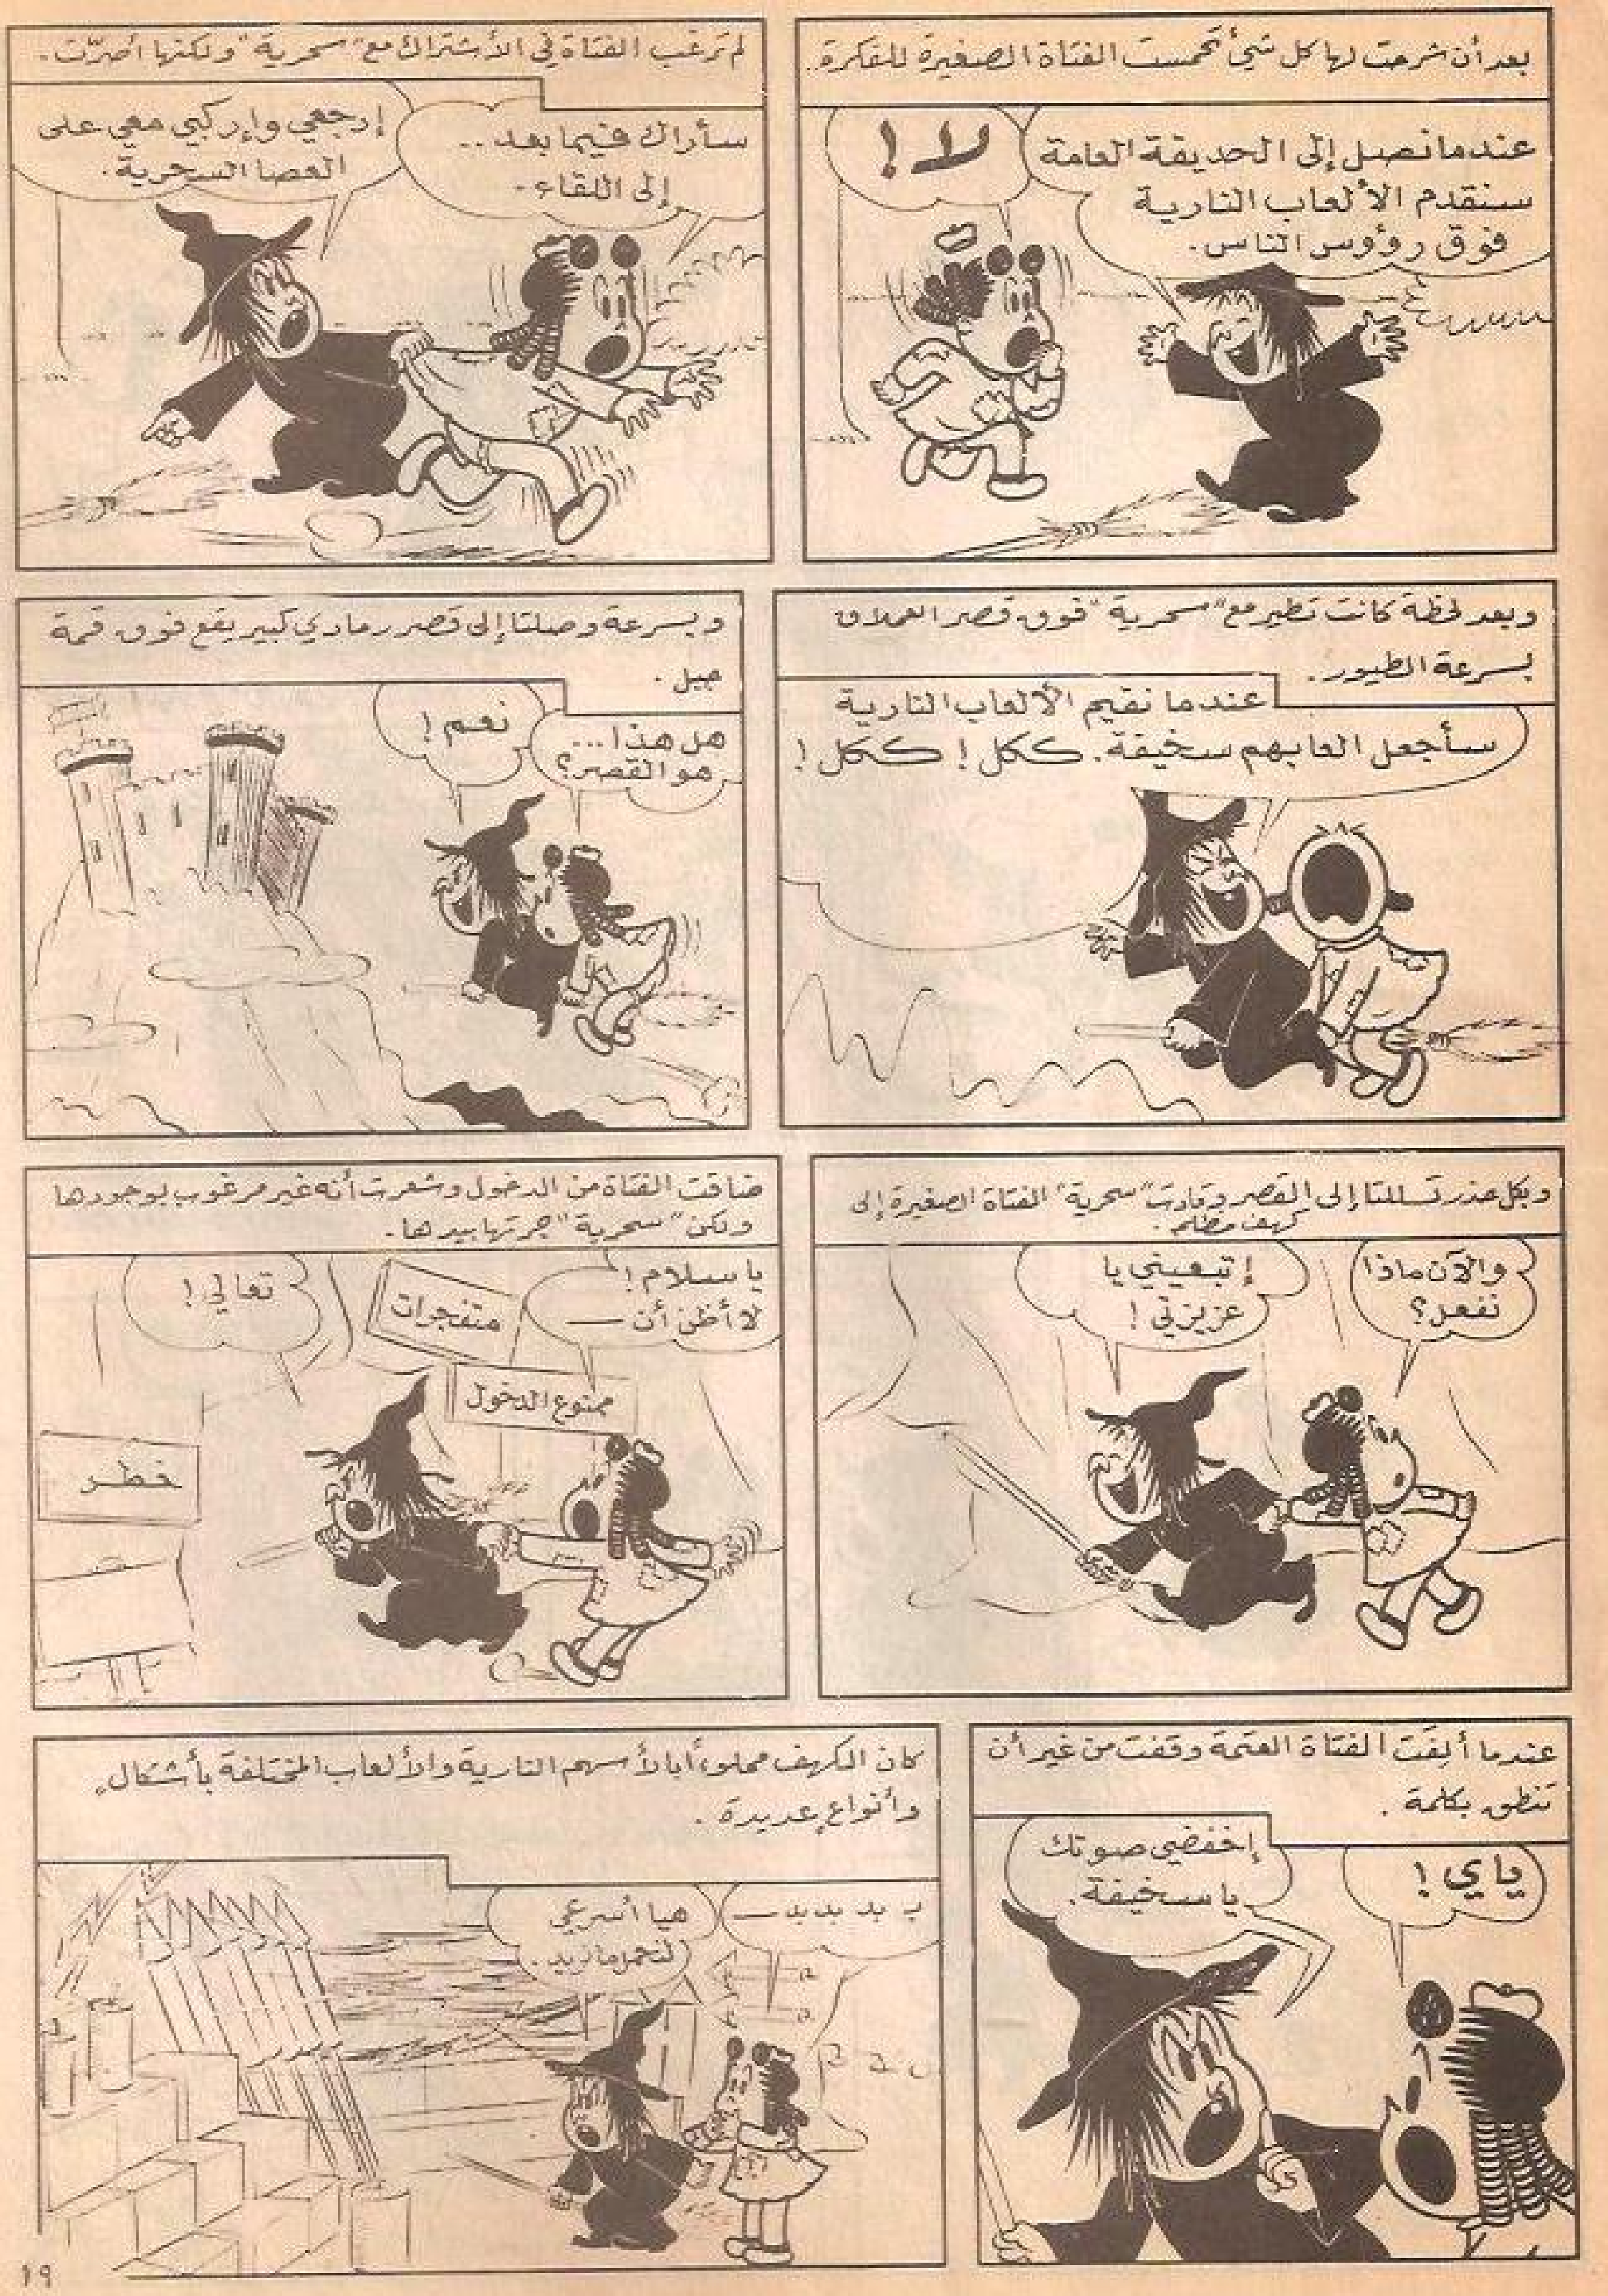 بعد أن شرحت لها كل شيئ تحمست الفتاة الصغيرة للفكرة..
عندما نصل إلى الحديقة العامة
سنقدم الألعاب النارية
فوق رؤوس الناس.
لا !
لم ترغب الفتاة في الأشتراك مع "سحرية" ولكنها أصرّت.
سأراك فيما بعد ..
إلى اللقاء.
إرجعي وإركبي معي على
العصا السحرية.
وبعد لحظة كانت تطير مع "سحرية" فوق قصر العملاق
بسرعة الطيور.
عندما نقيم الألعاب النارية
سأجعل العابهم سخيفة. ككل ! ككل !
وبسرعة وصلتا إلى قصر رمادي كبير يقع فوق قمة
جبل .
هل هذا ...
هو القصر؟
نعم !
وبكل حذر تسللتا إلى القصر وقادت "سحرية" الفتاة الصغيرة إلى
كهف مظلم .
والآن ماذا
نفعل ؟
إتبعيني يا
عزيزتي !
خافت الفتاة من الدخول وشعرت أنه غير مرغوب بوجودها
ولكن "سحرية" جرتها بيدها.
يا سلام !
لا أظن أن —
متفجرات
ممنوع الدخول
تعالي !
خطر
عندما ألِفَت الفتاة العتمة وقفت من غير أن
تنطق بكلمة .
ياي !
إخفضي صوتك
يا سخيفة.
كان الكهف مملوءاً بالأسهم النارية والألعاب المختلفة بأشكال
وأنواع عديدة .
ب بد بد بد —
هيا أسرعي
لنحمل ما نريد.
١٩